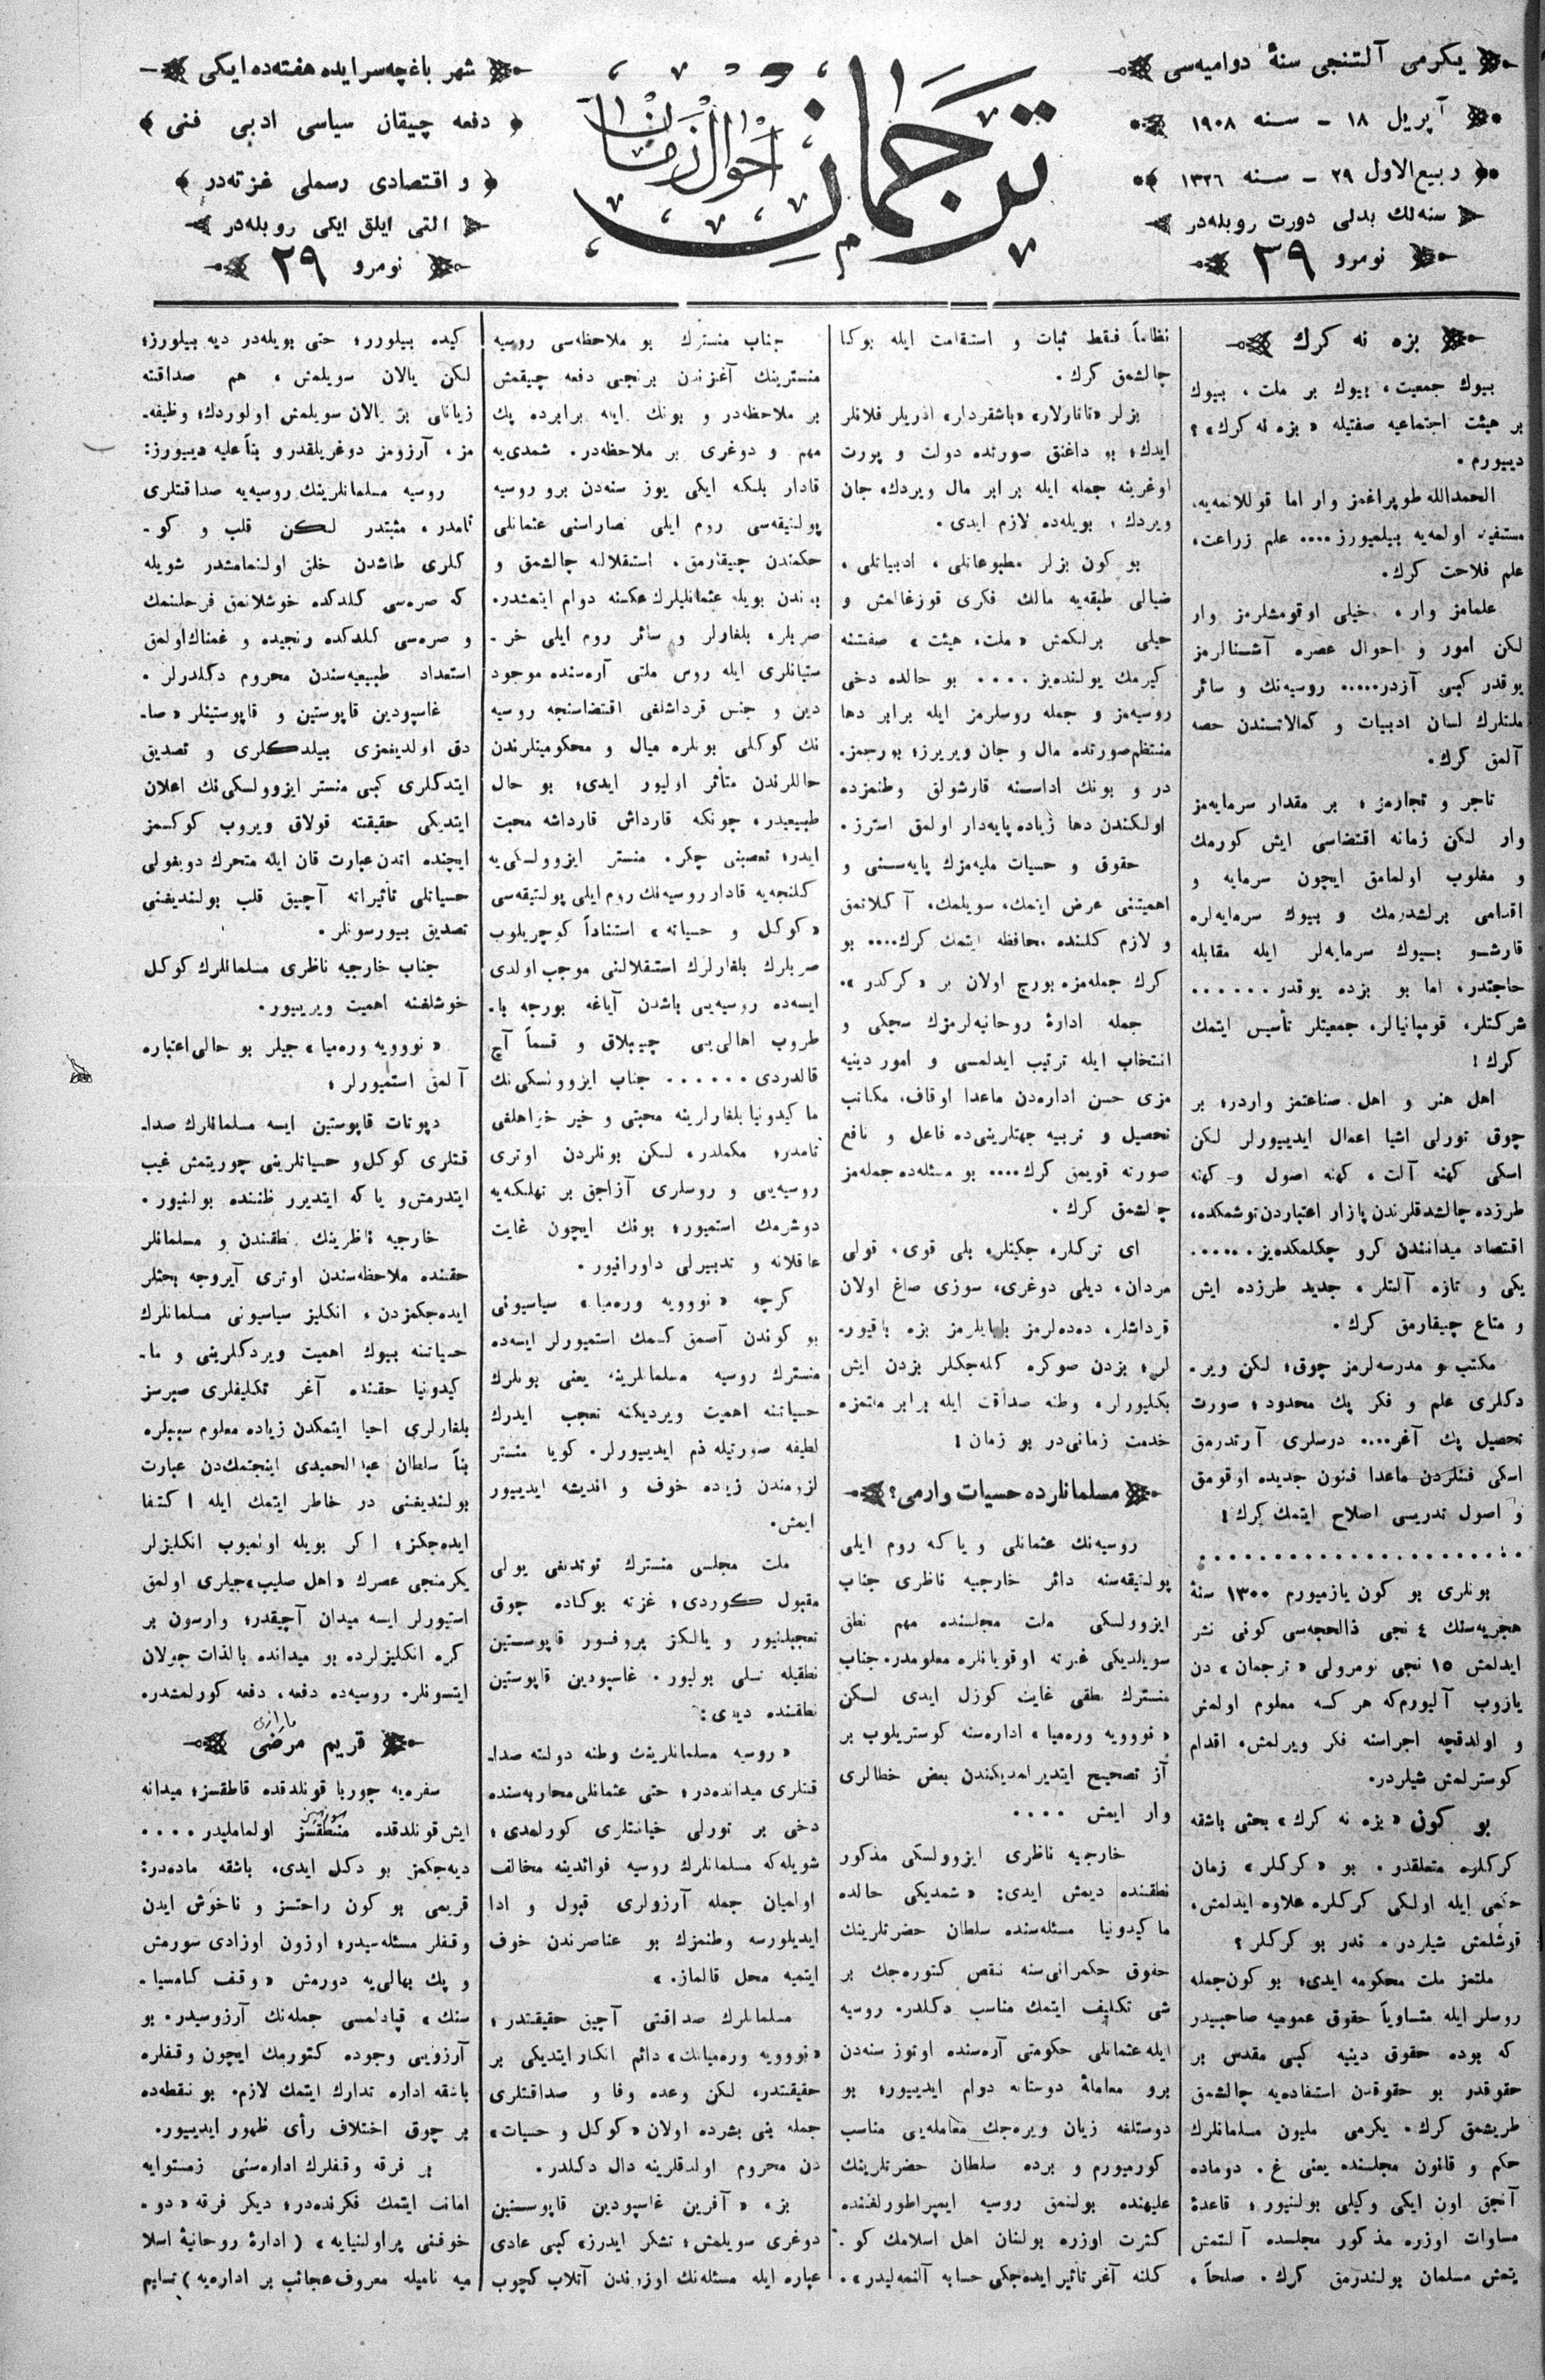 یكرمی آلتنجی سنۀ دوامیه‌سی
آپریل ١٨ – سنه ١٩٠٨
ربیع‌الاول ٢٩ – سنه ١٣٢٦
سنه‌لك بدلی دورت روبله‌در
نومرو ٢٩
ترجمان
احوال زمان
شهر باغچه‌سرایده هفته‌ده ایكی
دفعه چیقان سیاسی ادبی فنی
و اقتصادی رسملی غزته‌در
التی ایلق ایكی روبله‌در
نومرو ٢٩
بزه نه كرك
بیوك جمعیت، بیوك بر ملت، بیوك
بر هیئت اجتماعیه صفتیله «بزه نه كرك»؟
دییورم.
الحمدالله طوپراغمز وار اما قوللانمه‌یه،
مستفید اولمه‌یه بیلمیورز.... علم زراعت،
علم فلاحت كرك.
علمامز وار، خیلی اوقومشلرمز وار
لكن امور و احوال عصره آشنالرمز
یوقدر كبی آزدر..... روسیه‌نك و سائر
ملتلرك لسان ادبیات و كمالاتندن حصه
آلمق كرك.
تاجر و تجارمز؛ بر مقدار سرمایه‌مز
وار لكن زمانه اقتضاسی ایش كورمك
و مغلوب اولمامق ایچون سرمایه و
اقدامی برلشدرمك و بیوك سرمایه‌لره
قارشو بیوك سرمایه‌لر ایله مقابله
حاجتدر، اما بو بزده یوقدر......
شركتلر، قومپانیالر، جمعیتلر تأسیس ایتمك
كرك!
اهل هنر و اهل صناعتمز واردر؛ بر
چوق تورلی اشیا اعمال ایدییورلر لكن
اسكی كهنه آلت، كهنه اصول و كهنه
طرزده چالشدقلرندن پازار اعتباردن توشمكده،
اقتصاد میدانندن كرو چكلمكده‌یز......
یكی و تازه آلتلر، جدید طرزده ایش
و متاع چیقارمق كرك.
مكتب و مدرسه‌لرمز چوق؛ لكن ویر-
دكلری علم و فكر پك محدود؛ صورت
تحصیل پك آغر.... درسلری آرتدرمق
اسكی فنلردن ماعدا فنون جدیده اوقومق
و اصول تدریسی اصلاح ایتمك كرك!
بونلری بو كون یازمیورم ١٣٠٠ سنۀ
هجریه‌سنك ٤ نجی ذالحجه‌سی كونی نشر
ایدلمش ١٥ نجی نومرولی «ترجمان» دن
یازوب آلیورم‌كه هر كسه معلوم اولمش
و اولدقچه اجراسنه فكر ویرلمش، اقدام
كوسترلمش شیلردر.
بو كون «بزه نه كرك» بحثی باشقه
كركلره متعلقدر. بو «كركلر» زمان
حكمی ایله اولكی كركلره علاوه ایدلمش،
قوشلمش شیلردر. ندر بو كركلر؟
ملتمز ملت محكومه ایدی؛ بو كون جمله
روسلر ایله متساویاً حقوق عمومیه صاحبیدر
كه بوده حقوق دینیه كبی مقدس بر
حقوقدر بو حقوقدن استفاده‌یه چالشمق
طریشمق كرك. یكرمی ملیون مسلمانلرك
حكم و قانون مجلسنده یعنی غ. دوماده
آنجق اون ایكی وكیلی بولنیور؛ قاعدۀ
مساوات اوزره مذكور مجلسده آلتمش
یتمش مسلمان بولندرمق كرك. صلحاً،
نظاماً فقط ثبات و استقامت ایله بوكا
چالشمق كرك.
بزلر «تاتارلار» «باشقردار» اذریلر فلانلر
ایدك؛ بو داغنق صورتده دولت و یورت
اوغرینه جمله ایله برابر مال ویردك، جان
ویردك؛ بویله‌ده لازم ایدی.
بو كون بزلر مطبوعاتلی، ادبیاتلی،
ضیالی طبقه‌یه مالك فكری قوزغالمش و
خیلی برلكمش «ملت، هیئت» صفتنه
كیرمك یولنده‌یز.... بو حالده دخی
روسیه‌مز و جمله روسلرمز ایله برابر دها
منتظم صورتده مال و جان ویریرز؛ بورجمز-
در و بونك اداسنه قارشولق وطنمزده
اولكندن دها زیاده پایه‌دار اولمق استرز.
حقوق و حسیات ملیه‌مزك پایه‌سنی و
اهمیتنی عرض ایتمك، سویلمك، آكلاتمق
و لازم كلنده محافظه ایتمك كرك.... بو
كرك جمله‌مزه بورج اولان بر «كركدر».
جمله ادارۀ روحانیه‌لرمزك سچكی و
انتخاب ایله ترتیب ایدلمسی و امور دینیه
مزی حسن اداره‌دن ماعدا اوقاف، مكاتب
تحصیل و تربیه جهتلرینی‌ده فاعل و نافع
صورته قویمق كرك.... بو مسئله‌ده جمله‌مز
چالشمق كرك.
ای تركلر، جكیتلر، بلی قوی، قولی
مردان، دیلی دوغری، سوزی صاغ اولان
قرداشلر، ده‌ده‌لرمز بابایلرمز بزه باقیور-
لر؛ بزدن صوكره كله‌جكلر بزدن ایش
بكلیورلر، وطنه صداقت ایله برابر ملتمزه
خدمت زمانی‌در بو زمان!
مسلمانلرده حسیات وارمی؟
روسیه‌نك عثمانلی و یاكه روم ایلی
پولتیقه‌سنه دائر خارجیه ناظری جناب
ایزوولسكی ملت مجلسنده مهم نطق
سویلدیكی غزته اوقویانلره معلومدر. جناب
منسترك نطقی غایت كوزل ایدی لكن
«نوویه وره‌میا» اداره‌سنه كوستریلوب بر
آز تصحیح ایتدیرلمدیكندن بعض خطالری
وار ایمش....
خارجیه ناظری ایزوولسكی مذكور
نطقنده دیمش ایدی: «شمدیكی حالده
ماكیدونیا مسئله‌سنده سلطان حضرتلرینك
حقوق حكمرانی‌سنه نقص كتوره‌جك بر
شی تكلیف ایتمك مناسب دكلدر. روسیه
ایله عثمانلی حكومتی آره‌سنده اوتوز سنه‌دن
برو معاملۀ دوستانه دوام ایدییور؛ بو
دوستلغه زیان ویره‌جك معامله‌یی مناسب
كورمیورم و برده سلطان حضرتلرینك
علیهنده بولنمق روسیه ایمپراطورلغنده
كثرت اوزره بولنان اهل اسلامك كو-
كلنه آغر تاثیر ایده‌جكی حسابه آلنمه‌لیدر».
جناب منسترك بو ملاحظه‌سی روسیه
منسترینك آغزندن برنجی دفعه چیقمش
بر ملاحظه‌در و بونك ایله برابرده پك
مهم و دوغری بر ملاحظه‌در. شمدی‌یه
قادار بلكه ایكی یوز سنه‌دن برو روسیه
پولتیقه‌سی روم ایلی نصاراسنی عثمانلی
حكمندن چیقارمق، استقلالنه چالشمق و
بوندن بویله عثمانلیلرك عكسنه دوام ایتمشدر.
صربلر، بلغارلر و سائر روم ایلی خر-
ستیانلری ایله روس ملتی آره‌سنده موجود
دین و جنس قرداشلغی اقتضاسنجه روسیه
نك كوكلی بونلره میال و محكومیتلرندن
حاللرندن متأثر اولیور ایدی؛ بو حال
طبیعیدر، چونكه قارداش قارداشه محبت
ایدر؛ تعصبنی چكر. منستر ایزوولسكی‌یه
كلنجه‌یه قادار روسیه‌نك روم ایلی پولتیقه‌سی
«كوكل و حسیاته» استناداً كوچریلوب
صربلرك بلغارلرك استقلالنی موجب اولدی
ایسه‌ده روسیه‌یی باشدن آیاغه بورجه با-
طروب اهالی‌یی چیپلاق و قسماً آچ
قالدردی...... جناب ایزوولسكی‌نك
ماكیدونیا بلغارلرینه محبتی و خیر خواهلغی
تامدر؛ مكملدر، لكن بونلردن اوتری
روسیه‌یی و روسلری آزاجق بر تهلكه‌یه
دوشرمك استمیور؛ بونك ایچون غایت
عاقلانه و تدبیرلی داورانیور.
كرچه «نوویه وره‌میا» سیاسیونی
بو كوندن آصمق كسمك استمیورلر ایسه‌ده
منسترك روسیه مسلمانلرینه یعنی بونلرك
حسیاتنه اهمیت ویردیكنه تعجب ایدرك
لطیفه صورتیله ذم ایدییورلر. كویا منستر
لزومندن زیاده خوف و اندیشه ایدییور
ایمش.
ملت مجلسی منسترك توتدیغی یولی
مقبول كوردی؛ غزته بوكاده چوق
تعجبلنیور و یالكز پروفسور قاپوستین
نطقیله تسلی بولیور. غاسپودین قاپوستین
نطقنده دیدی:
«روسیه مسلمانلرینك وطنه دولته صدا-
قتلری میدانده‌در؛ حتی عثمانلی محاربه‌سنده
دخی بر تورلی خیانتلری كورلمدی؛
شویله‌كه مسلمانلرك روسیه فوائدینه مخالف
اولمیان جمله آرزولری قبول و ادا
ایدیلورسه وطنمزك بو عناصرندن خوف
ایتمیه محل قالماز.»
مسلمانلرك صداقتی آچیق حقیقتدر؛
«نوویه وره‌میانك» دائم انكار ایتدیكی بر
حقیقتدر، لكن وعده وفا و صداقتلری
جمله بنی بشرده اولان «كوكل و حسیات»
دن محروم اولدقلرینه دال دكلدر.
بزه «آفرین غاسپودین قاپوستین
دوغری سویلمش؛ تشكر ایدرز» كبی عادی
عباره ایله مسئله‌نك اوزرندن آتلاب كچوب
كیده بیلورز؛ حتی بویله‌در دیه بیلورز؛
لكن یالان سویلمش، هم صداقته
زیانلی بر یالان سویلمش اولوردك؛ وظیفه-
مز، آرزومز دوغریلقدر و بناً علیه دییورز:
روسیه مسلمانلرینك روسیه‌یه صداقتلری
تامدر، مثبتدر لكن قلب و كو-
كللری طاشدن خلق اولنمامشدر شویله
كه صره‌سی كلدكده خوشلانمق فرحلنمك
و صره‌سی كلدكده رنجیده و غمناك اولمق
استعداد طبیعیه‌سندن محروم دكلدرلر.
غاسپودین قاپوستین و قاپوستینلر «صا-
دق اولدیغمزی بیلدكلری و تصدیق
ایتدكلری كبی منستر ایزوولسكی‌نك اعلان
ایتدیكی حقیقته قولاق ویروب كوكسمز
ایچنده اتدن عبارت قان ایله متحرك دویغولی
حسیاتلی تأثیراته آچیق قلب بولندیغنی
تصدیق بیورسونلر.
جناب خارجیه ناظری مسلمانلرك كوكل
خوشلغنه اهمیت ویرییور.
«نوویه وره‌میا» جیلر بو حالی اعتباره
آلمق استمیورلر؛
دپوتات قاپوستین ایسه مسلمانلرك صدا-
قتلری كوكل و حسیاتلرینی چوریتمش غیب
ایتدرمش و یاكه ایتدیرر ظننده بولنیور.
خارجیه ناظرینك نطقندن و مسلمانلر
حقنده ملاحظه‌سندن اوتری آیروجه بحثلر
ایده‌جكمزدن، انكلیز سیاسیونی مسلمانلرك
حسیاتنه بیوك اهمیت ویردكلرینی و ما-
كیدونیا حقنده آغر تكلیفلری صبرسز
بلغارلری احیا ایتمكدن زیاده معلوم سببلره
بناً سلطان عبدالحمیدی اینجتمك‌دن عبارت
بولندیغنی در خاطر ایتمك ایله اكتفا
ایده‌جكز؛ اكر بویله اولمیوب انكلیزلر
یكرمنجی عصرك «اهل صلیب» جیلری اولمق
استیورلر ایسه میدان آچیقدر؛ وارسون بر
كره انكلیزلرده بو میدانده بالذات جولان
ایتسونلر. روسیه‌ده دفعه، دفعه كورلمشدر.
قریم مرضی
سفره‌یه چوربا قونلدقده قاطقسز؛ میدانه
ایش قونلدقده منطقسز اولمامالیدر....
دیه‌جكمز بو دكل ایدی، باشقه ماده‌در:
قریمی بو كون راحتسز و ناخوش ایدن
وقفلر مسئله‌سیدر؛ اوزون اوزادی سورمش
و پك بهالی‌یه دورمش «وقف كامسیا-
سنك» قپادلمسی جمله‌نك آرزوسیدر. بو
آرزویی وجوده كتورمك ایچون وقفلره
باشقه اداره تدارك ایتمك لازم. بو نقطه‌ده
بر چوق اختلاف رأی ظهور ایدییور.
بر فرقه وقفلرك اداره‌سنی زمستوایه
امانت ایتمك فكرنده‌در؛ دیكر فرقه «دو-
خوفنی پراولنیایه» (ادارۀ روحانیۀ اسلا
میه نامیله معروف عجائب بر اداره‌یه) تسلیم